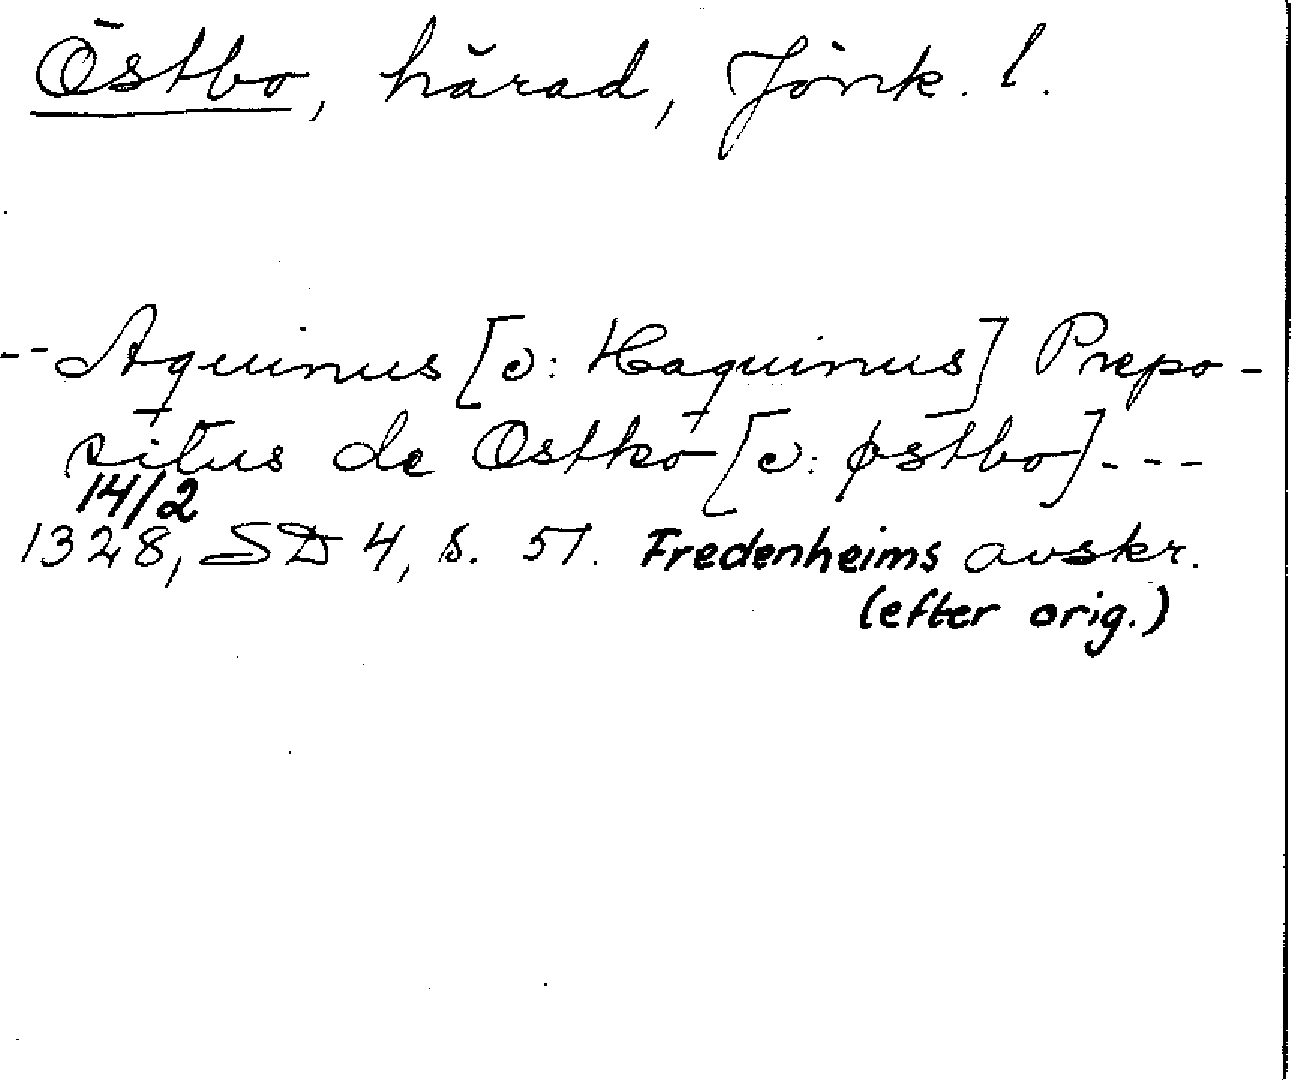 Östbo, härad, Jönk. l.
-- Aquinus [ɔ: Haquinus] Prepo-
situs de Ostko [ɔ: østbo] ---
14/2
1328, SD 4, s. 51. Fredenheims avskr.
(efter orig.)